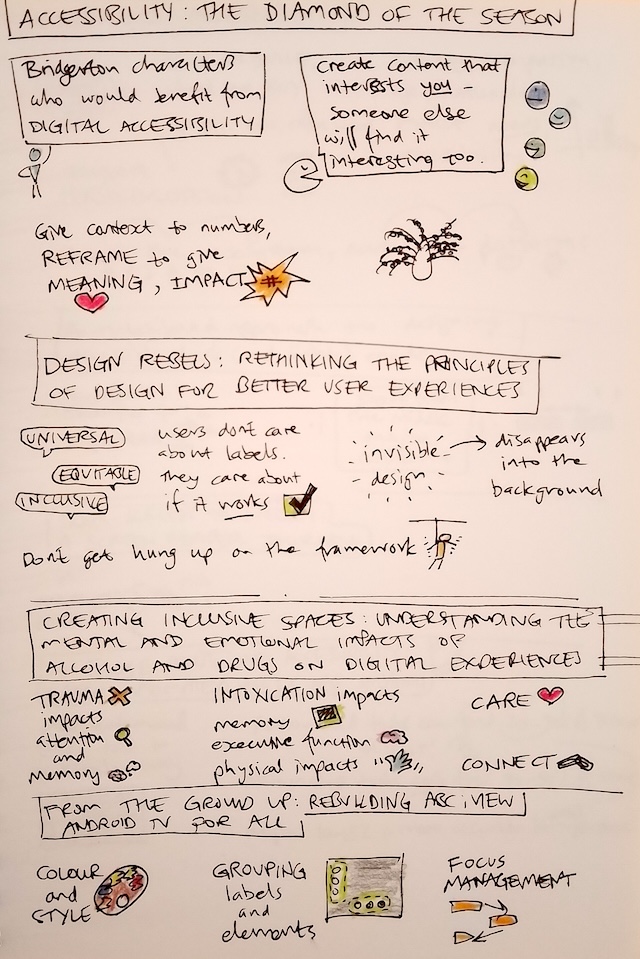 ACCESSIBILITY: THE DIAMOND OF THE SEASON
Bridgerton characters
who would benefit from
DIGITAL ACCESSIBILITY
Create content that
interests you -
someone else
will find it
interesting too.
Give context to numbers,
REFRAME to give
MEANING, IMPACT
#
DESIGN REBELS: RETHINKING THE PRINCIPLES
OF DESIGN FOR BETTER USER EXPERIENCES
UNIVERSAL
EQUITABLE
INCLUSIVE
users don't care
about labels.
They care about
if it works
invisible
design
disappears
into the
background
Don't get hung up on the framework
CREATING INCLUSIVE SPACES: UNDERSTANDING THE
MENTAL AND EMOTIONAL IMPACTS OF
ALCOHOL AND DRUGS ON DIGITAL EXPERIENCES
TRAUMA
impacts
attention
and
memory
INTOXICATION impacts
memory
executive function
physical impacts
CARE
CONNECT
FROM THE GROUND UP: REBUILDING ABC iVIEW
ANDROID TV FOR ALL
COLOUR
and
STYLE
GROUPING
labels
and
elements
FOCUS
MANAGEMENT